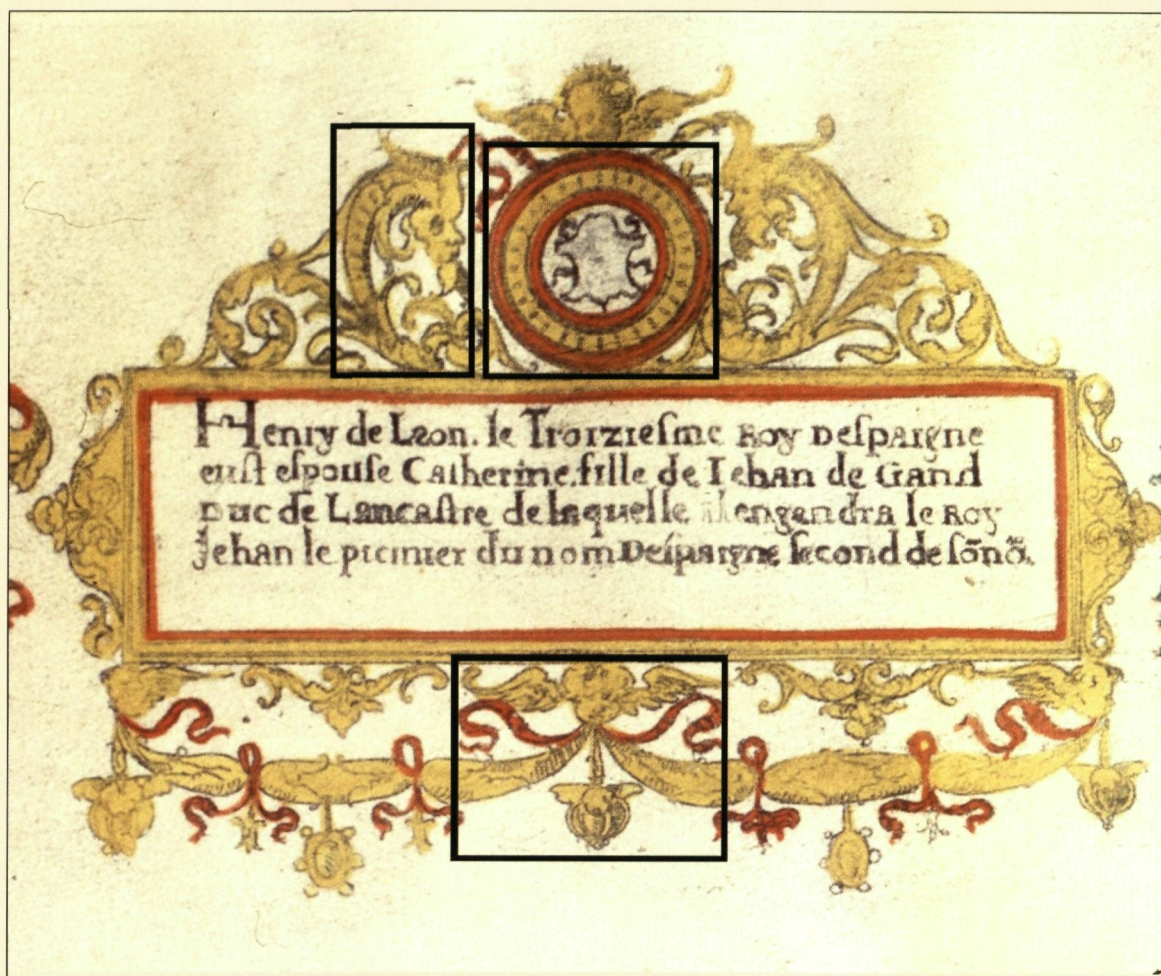 Henry de Leon. le Troiziesme Roy Despaigne
eust espouse Catherine. fille de Iehan de Gand
Duc de Lancastre de laquelle il engendra le Roy
Jehan le premier du nom Despaigne second de sõnõ.